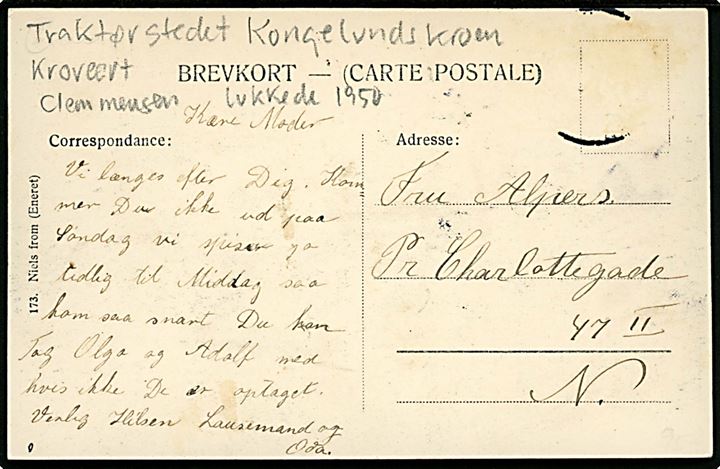 Traktørstedet Kongelundskroen
Kroveert
Clemmensen lukkede 1950
BREVKORT — (CARTE POSTALE)
Kære Moder
Correspondance:
Vi længes efter Dig. Kom
mer Du ikke ud paa
Søndag vi spiser jo
tidlig til Middag saa
kom saa snart Du kan
Tag Olga og Adolf med
hvis ikke De er optaget.
Venlig Hilsen Lausemand og
Oda.
173. Niels from (Eneret)
Adresse:
Fru Alpers.
Pr Charlottegade
47 II
N.